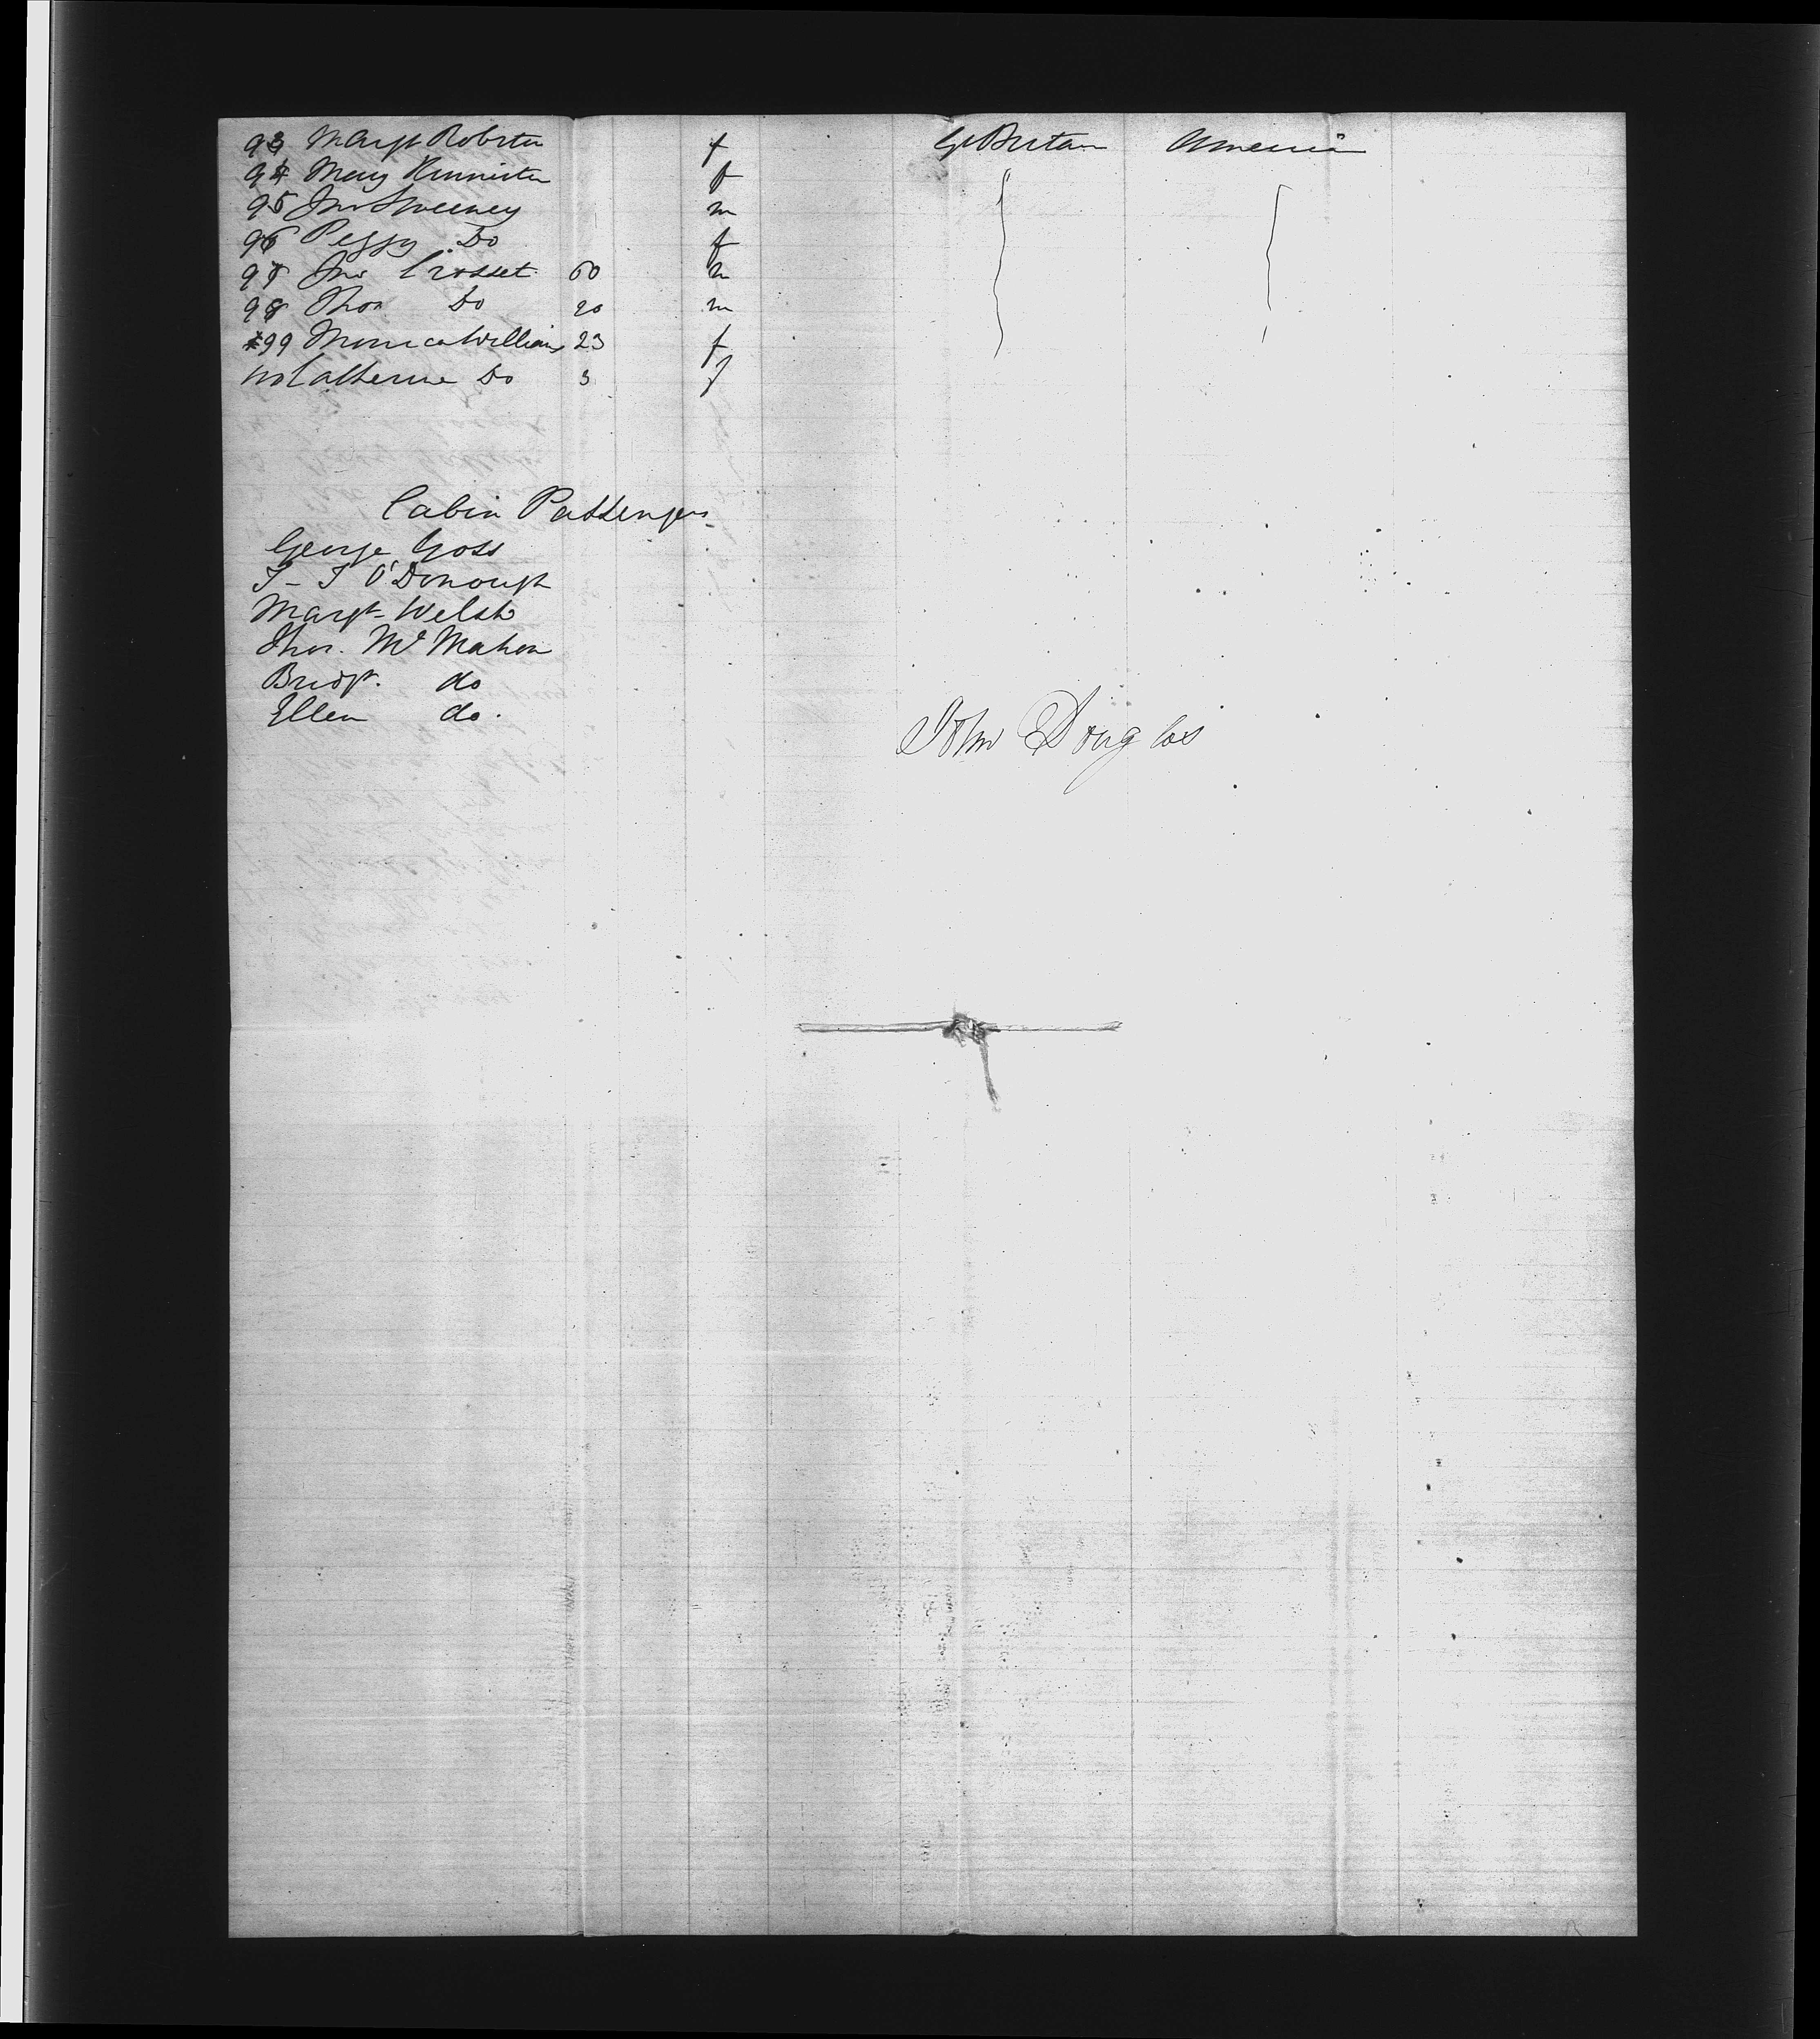 93 Margt Robster f Gt Britain America
94 Mary Runnister f
95 Jno Sweeney m
96 Peggy Do f
97 Jno Crosset 60 m
98 Thos Do 20 m
99 Monica Williams 23 f
100 Catherine Do 3 f
Cabin Passengers
George Goss
T- T O'Donough
Margt- Welsh
Thos. Mc Mahon
Bridgt. do
Ellen do.
John Douglas